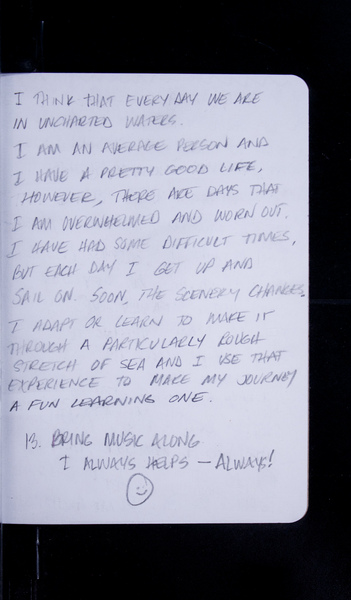 I THINK THAT EVERY DAY WE ARE
IN UNCHARTED WATERS.
I AM AN AVERAGE PERSON AND
I HAVE A PRETTY GOOD LIFE,
HOWEVER, THERE ARE DAYS THAT
I AM OVERWHELMED AND WORN OUT.
I HAVE HAD SOME DIFFICULT TIMES,
BUT EACH DAY I GET UP AND
SAIL ON. SOON, THE SCENERY CHANGES.
I ADAPT OR LEARN TO MAKE IT
THROUGH A PARTICULARLY ROUGH
STRETCH OF SEA AND I USE THAT
EXPERIENCE TO MAKE MY JOURNEY
A FUN LEARNING ONE.
13. BRING MUSIC ALONG
I ALWAYS HELPS — ALWAYS!